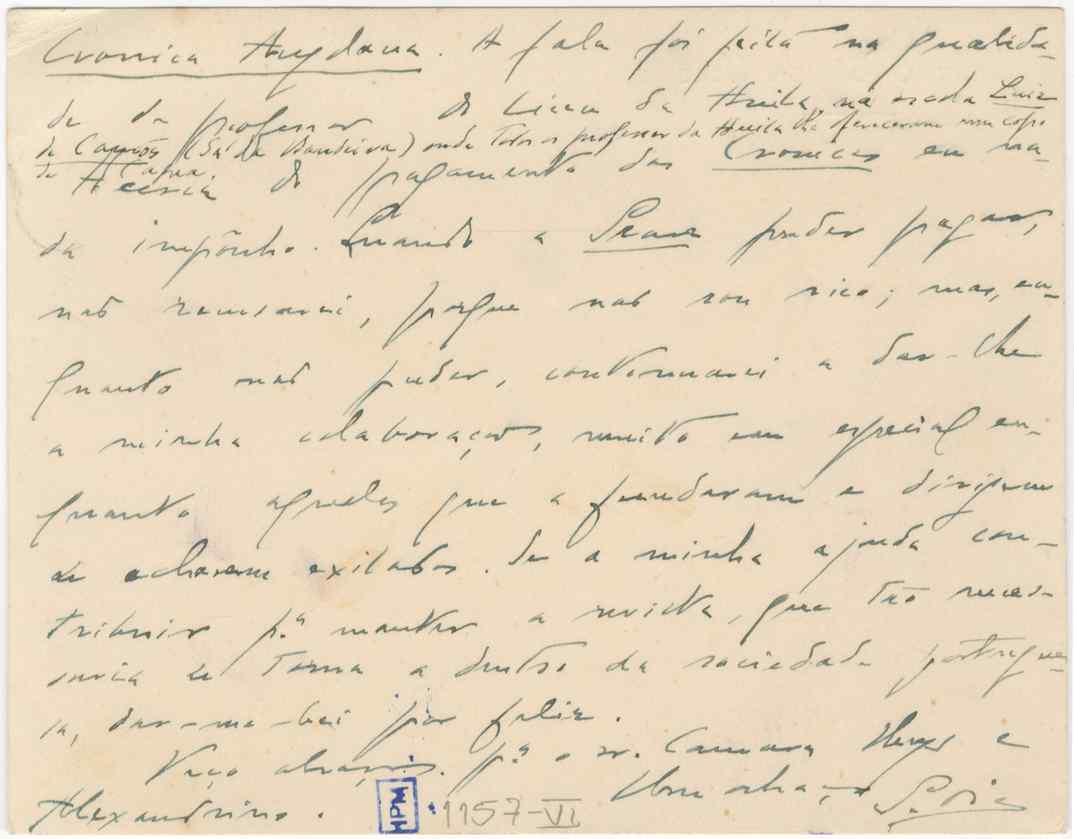 Cronica Angolana. A fala foi feita na qualida-
de de professor do Liceu da Huila, na escola Luiz
de Camões (Sá da Bandeira) onde todos os professores da Huila lhe ofereceram um copo
de
Acerca do pagamento das Cronicas eu na-
da impônho. Quando a Seara puder pagar,
não recusarei, porque não sou rico; mas, en-
quanto não puder, continuarei a dar-lhe
a minha colaboração, muito em especial en-
quanto aqueles que a fundaram e dirigem
se acharem exilados. Se a minha ajuda con-
tribuir p.ª manter a revista, que tão neces-
saria se torna a dentro da sociedade portugue-
sa, dar-me-hei por feliz.
Peço abraços p.ª o sr. Camara Reys e
Alexandrino. Um abraço
MPM 1157-VI